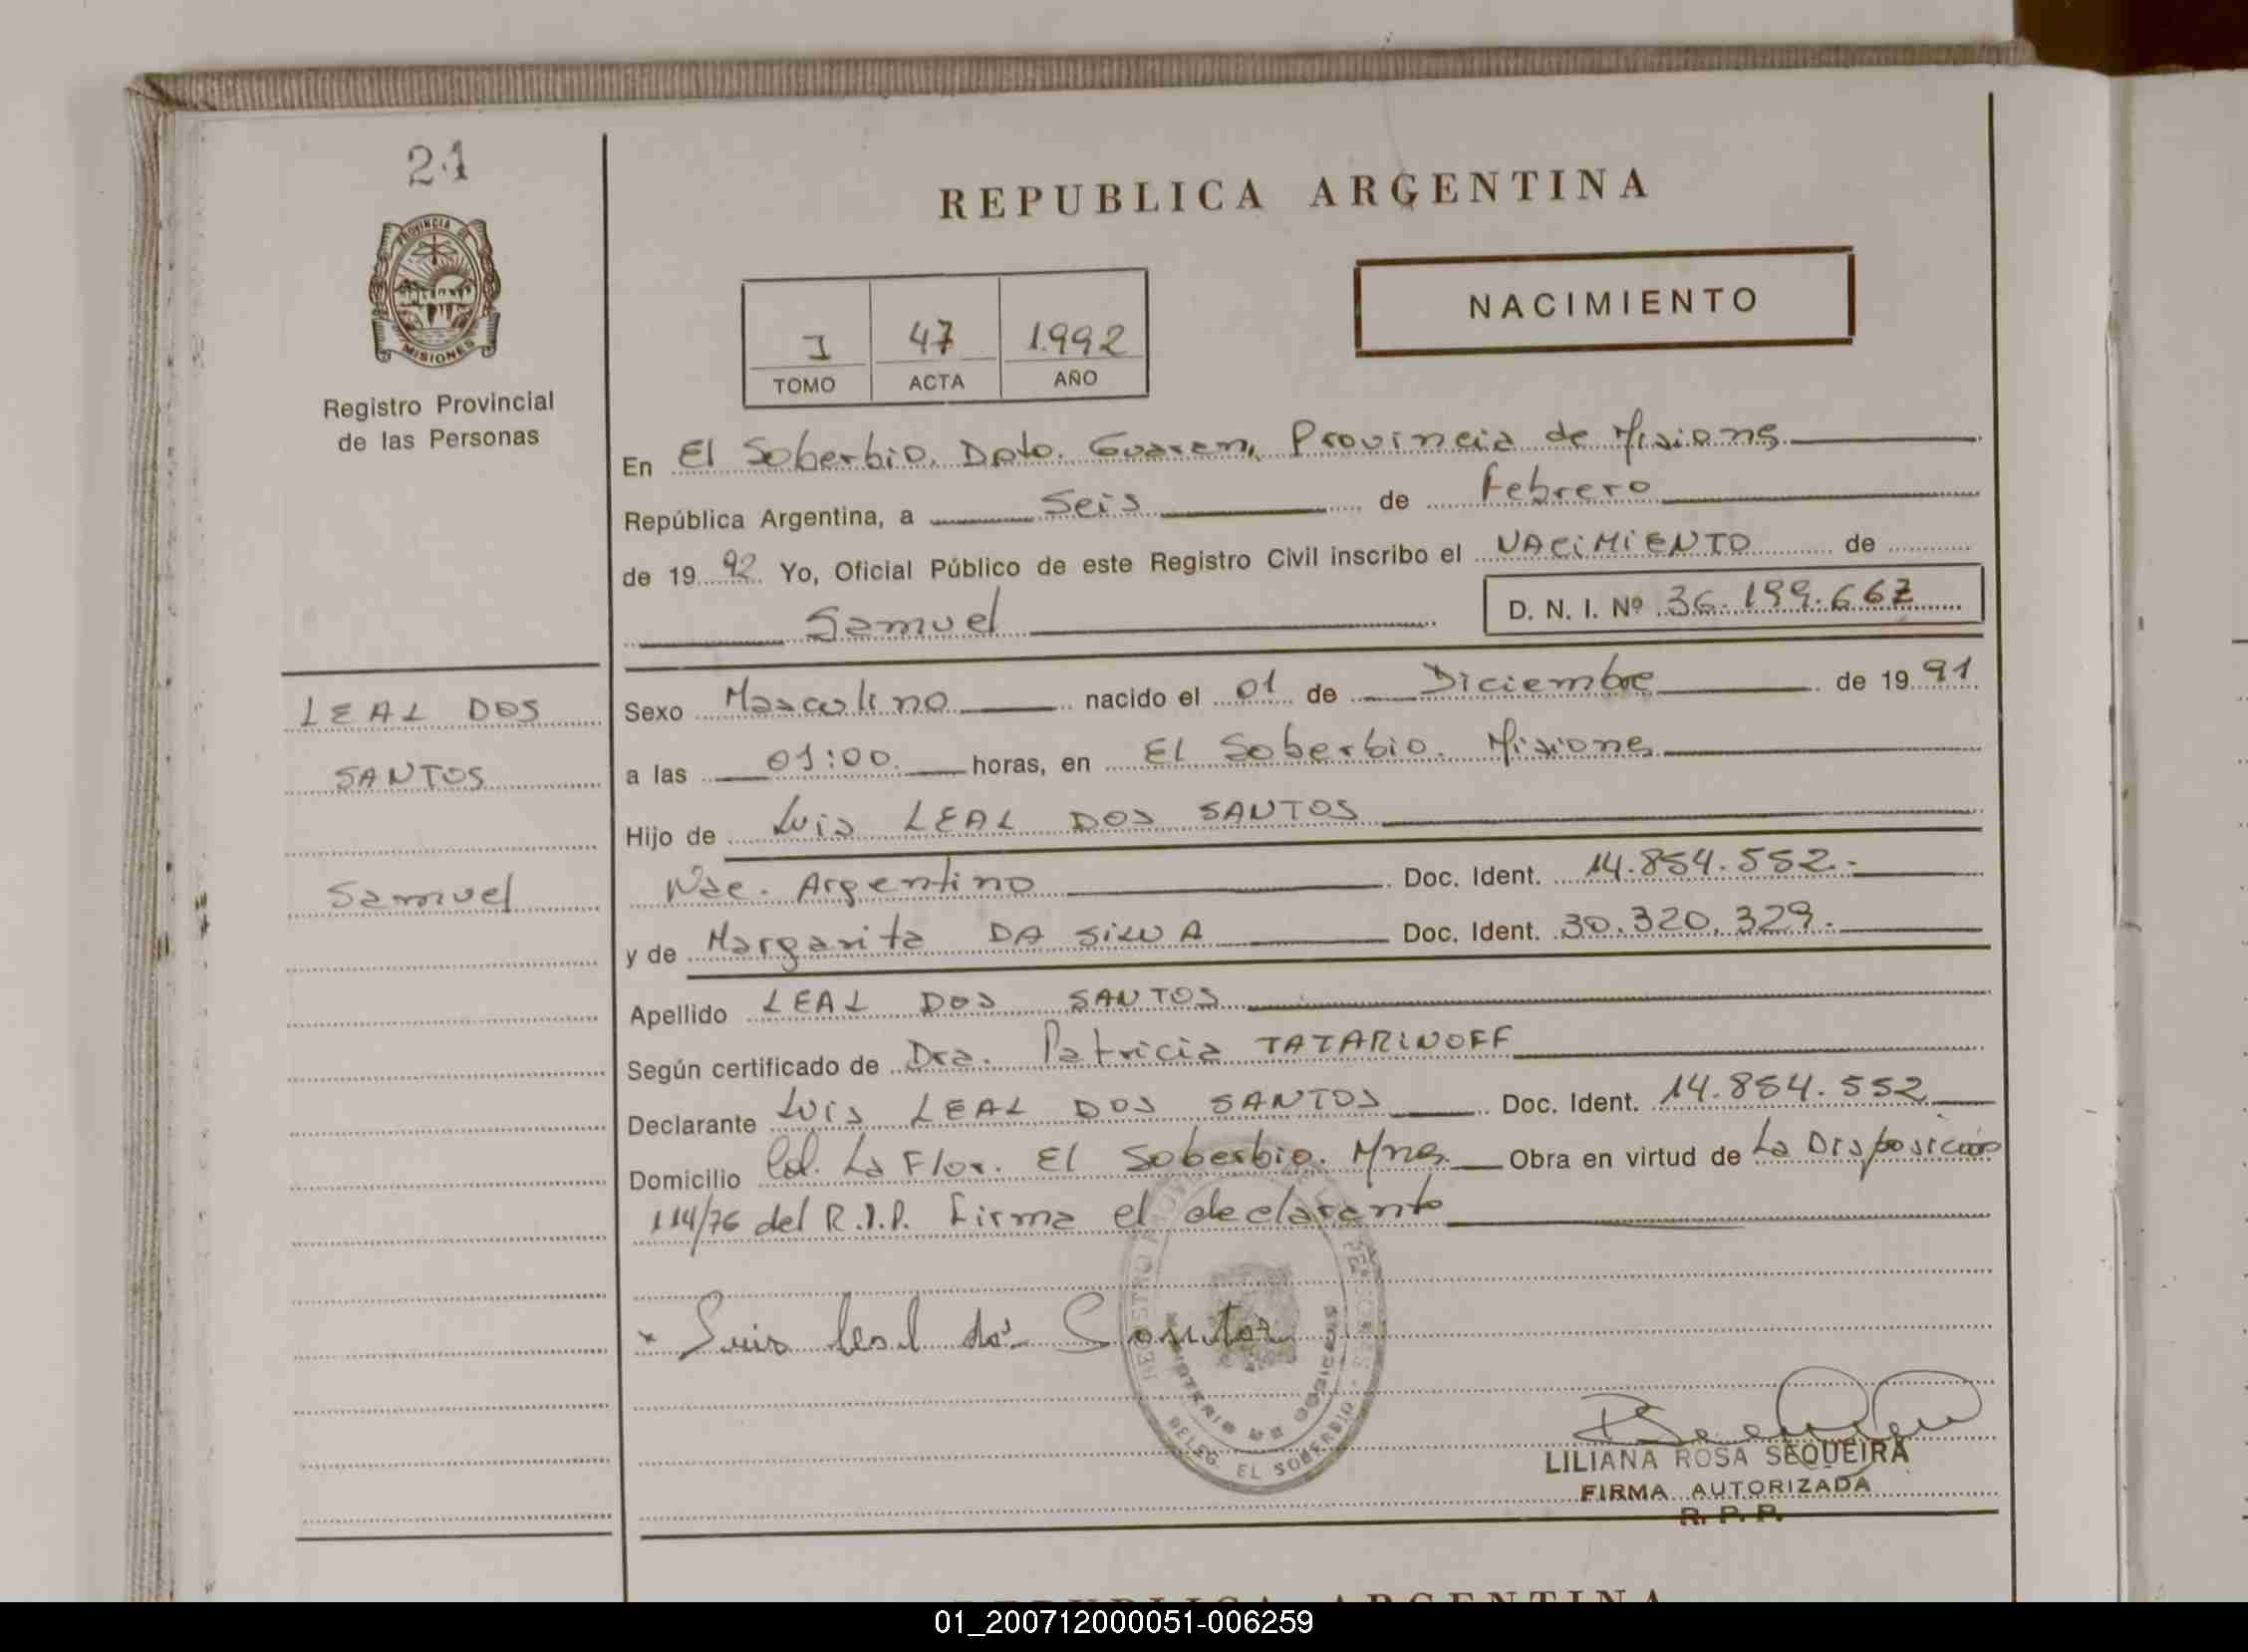 21
PROVINCIA DE
MISIONES
Registro Provincial
de las Personas
REPUBLICA ARGENTINA
NACIMIENTO
I 47 1.992
TOMO ACTA AÑO
En El Soberbio. Dpto. Guarani, Provincia de Misiones
República Argentina, a Seis de Febrero
de 1992 Yo, Oficial Público de este Registro Civil inscribo el NACIMIENTO de
Samuel D. N. I. Nº 36.199.667
LEAL DOS
SANTOS
Samuel
Sexo Masculino nacido el 01 de Diciembre de 1991
a las 01:00. horas, en El Soberbio. Misiones
Hijo de Luis LEAL DOS SANTOS
Nac. Argentino Doc. Ident. 14.854.552.-
y de Margarita DA SILVA Doc. Ident. 30.320.329.-
Apellido LEAL DOS SANTOS
Según certificado de Dra. Patricia TATARINOFF
Declarante Luis LEAL DOS SANTOS Doc. Ident. 14.854.552
Domicilio Col. La Flor. El Soberbio. Mnes. Obra en virtud de La Disposición
114/76 del R.P.P. Firma el declarante
Luis Leal dos Santos
DELEG. EL SOBERBIO
LILIANA ROSA SEQUEIRA
FIRMA AUTORIZADA
R. P. P.
REPUBLICA ARGENTINA
01_200712000051-006259